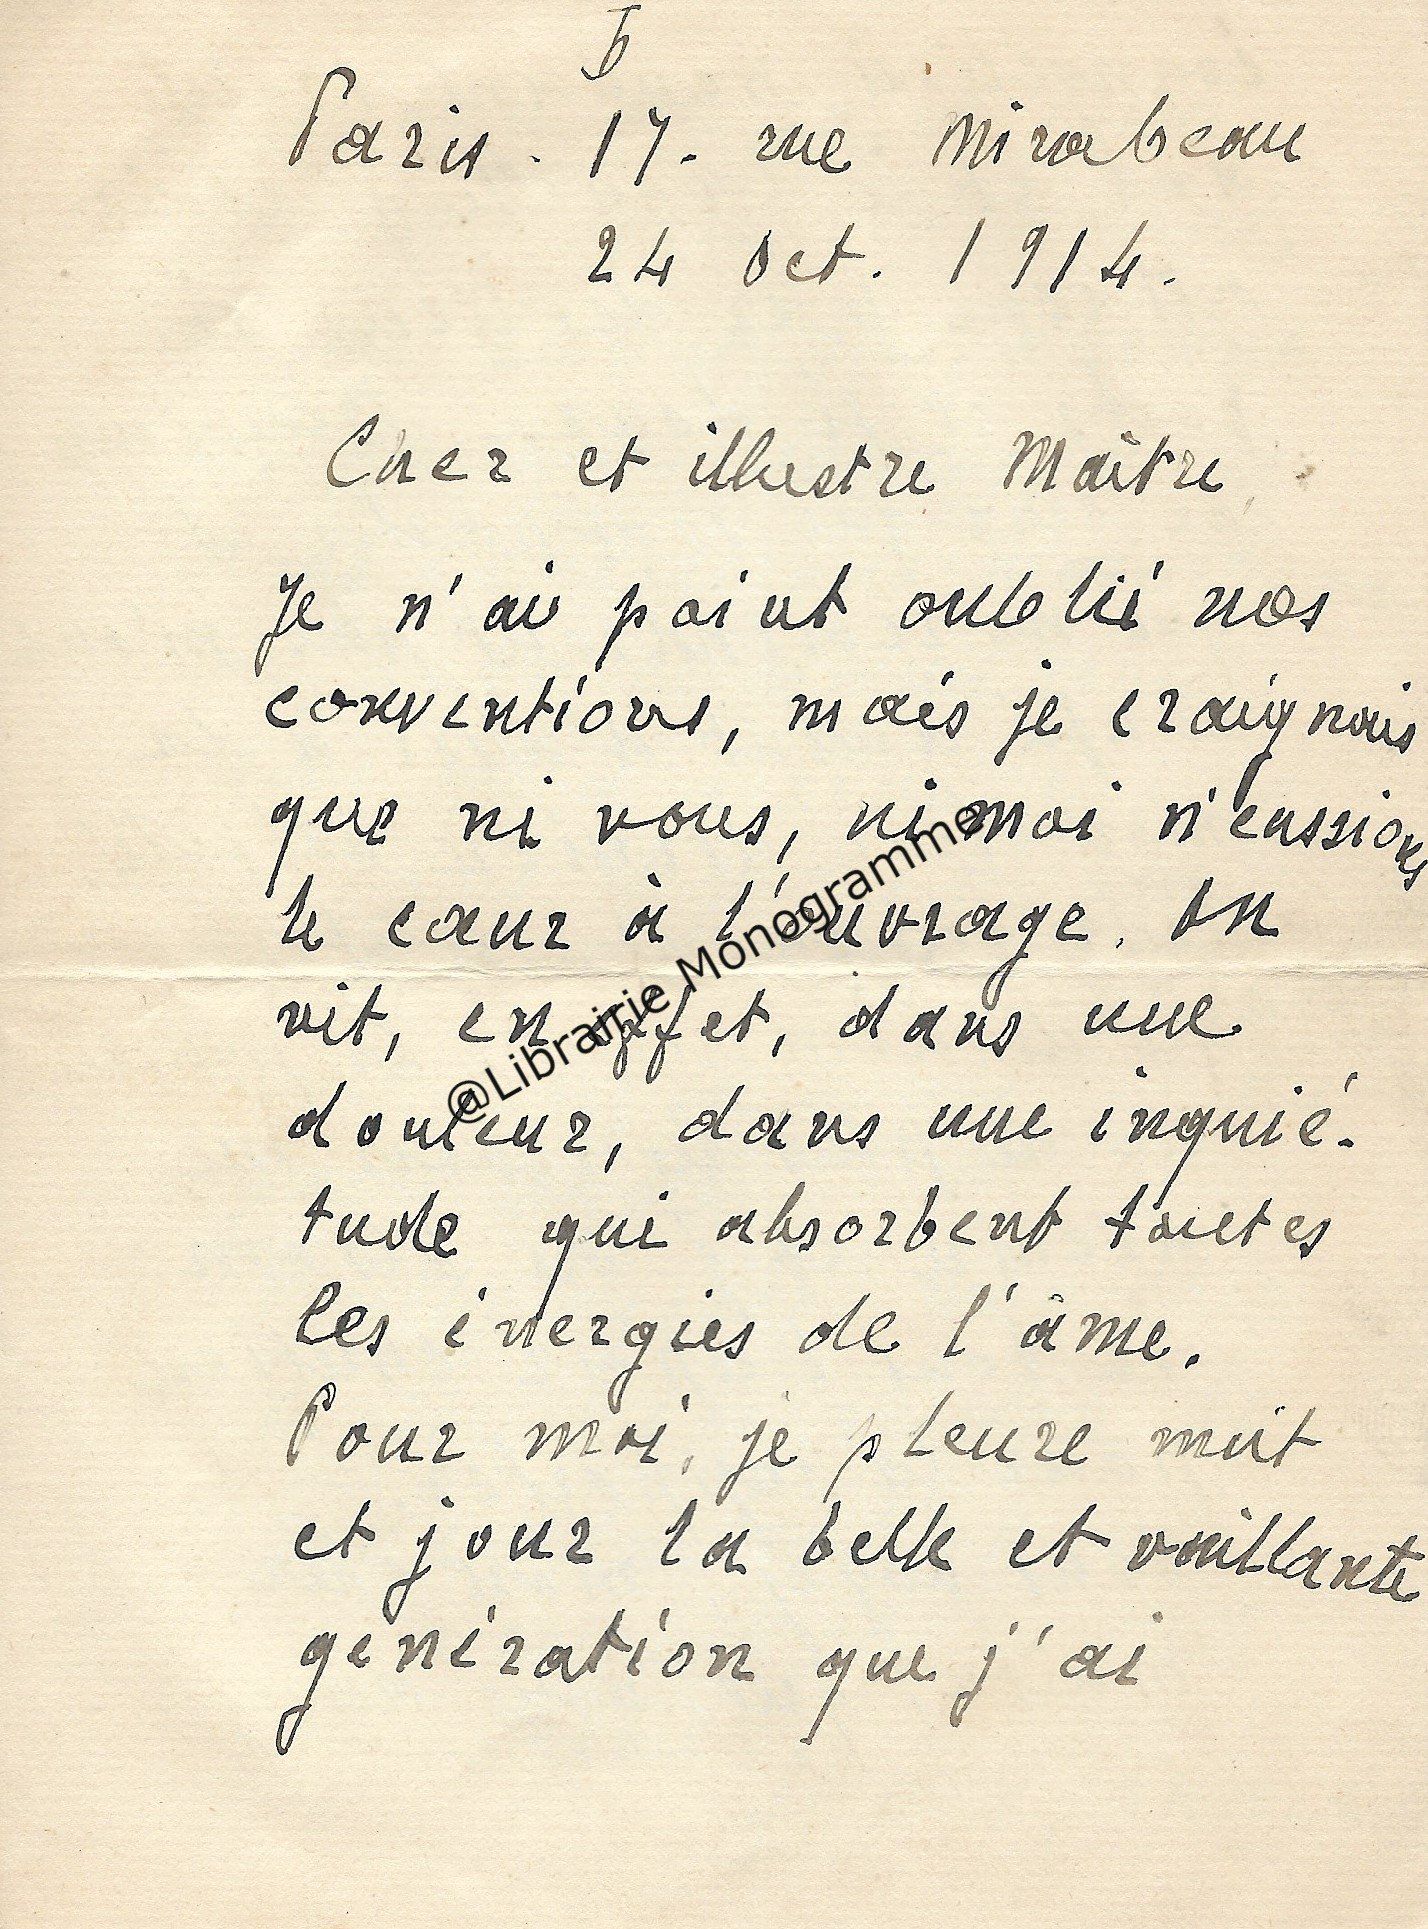 Paris. 17. rue Mirabeau
24 Oct. 1914.
Cher et illustre Maître,
Je n'ai point oublié nos
conventions, mais je craignais
que ni vous, ni moi n'eussions
le cœur à l'ouvrage. On
vit, en effet, dans une
douleur, dans une inquié-
tude qui absorbent toutes
les énergies de l'âme.
Pour moi, je pleure nuit
et jour la belle et vaillante
génération que j'ai
@Librairie Monogramme